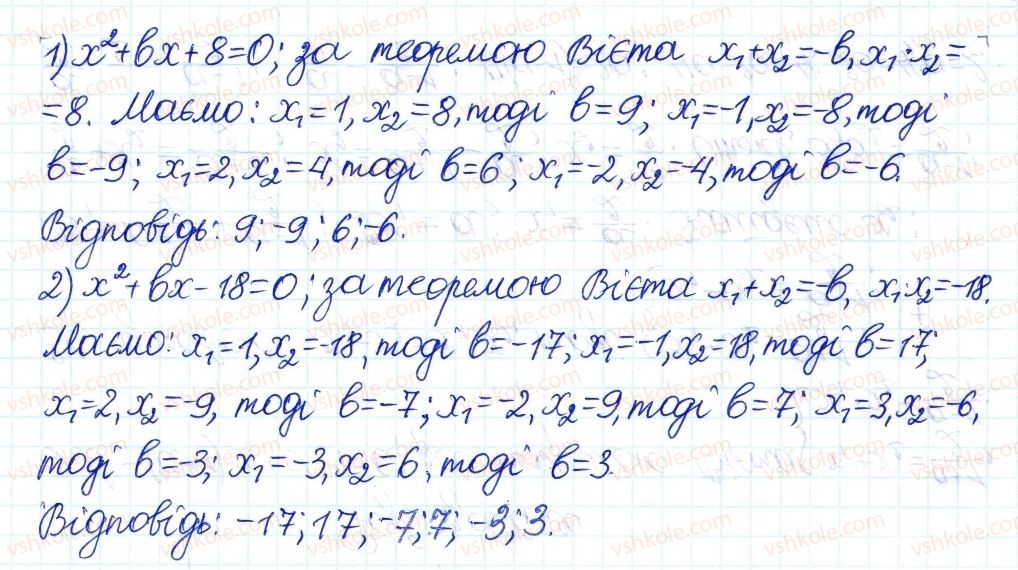 1) x²+bx+8=0; за теоремою Вієта x₁+x₂=-b, x₁·x₂=
=8. Маємо: x₁=1, x₂=8, тоді b=9; x₁=-1, x₂=-8, тоді
b=-9; x₁=2, x₂=4, тоді b=6; x₁=-2, x₂=-4, тоді b=-6.
Відповідь: 9; -9; 6; -6.
2) x²+bx-18=0; за теоремою Вієта x₁+x₂=-b, x₁·x₂=-18.
Маємо: x₁=1, x₂=-18, тоді b=-17; x₁=-1, x₂=18, тоді b=17;
x₁=2, x₂=-9, тоді b=-7; x₁=-2, x₂=9, тоді b=7; x₁=3, x₂=-6,
тоді b=-3; x₁=-3, x₂=6, тоді b=3.
Відповідь: -17; 17; -7; 7; -3; 3.